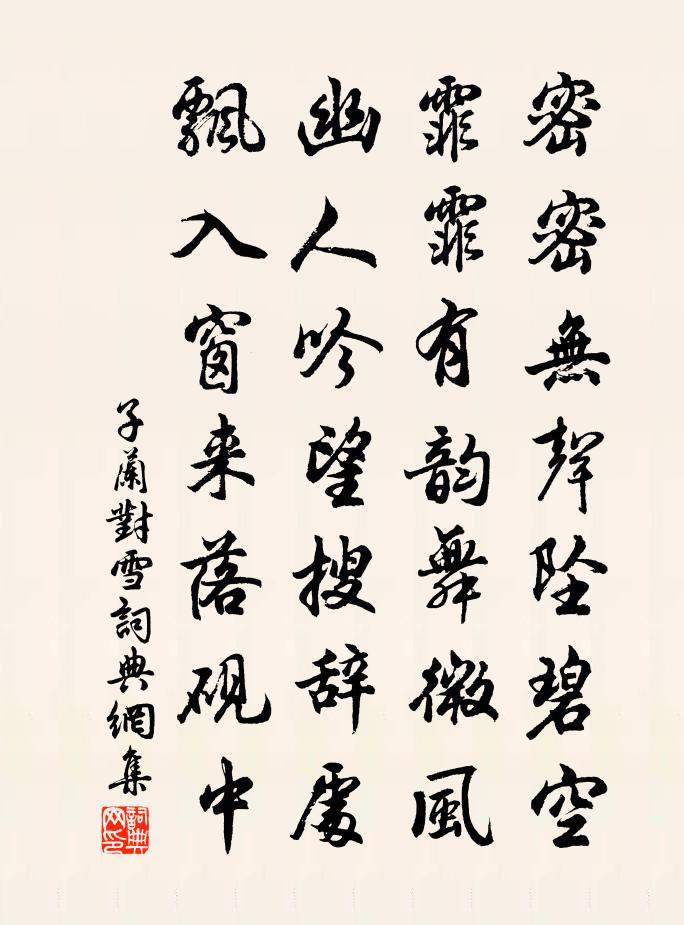 密密無聲坠碧空
霏霏有韵舞微風
幽人吟望搜辞處
飄入窗来落砚中
子蘭對雪詞典網集
詞典网印